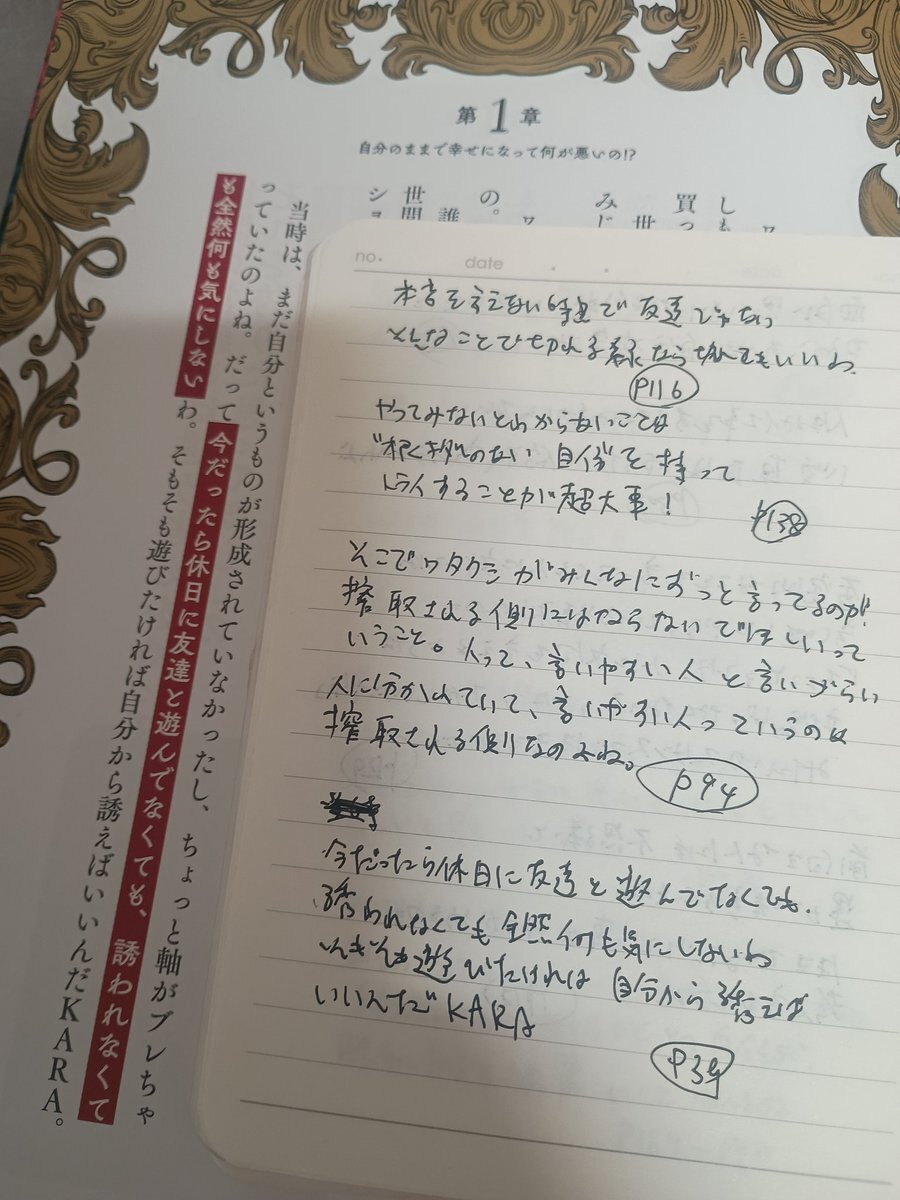 第1章
自分のままで幸せになって何が悪いの!?
しも
買っ
世
みじ
の。
誰
世間
ショ
当時は、まだ自分というものが形成されていなかったし、ちょっと軸がブレちゃ
っていたのよね。だって今だったら休日に友達と遊んでなくても、誘われなくて
も全然何も気にしないわ。そもそも遊びたければ自分から誘えばいいんだKARA。
no.
date
本音を言えない時点で友達じゃないっ
そんなことで切れる縁なら切れてもいいわ。
P116
やってみないとわからないことは
"根拠のない自信"を持って
トライすることが超大事!
P138
そこでワタクシがみんなにずっと言ってるのが!
搾取される側にはならないでほしいって
いうこと。人って、言いやすい人と言いづらい
人に分かれていて、言いやすい人っていうのは
搾取される側なのよね。
P94
今だったら休日に友達と遊んでなくても、
誘われなくても全然何も気にしないわ
そもそも遊びたければ自分から誘えば
いいんだKARA
P39